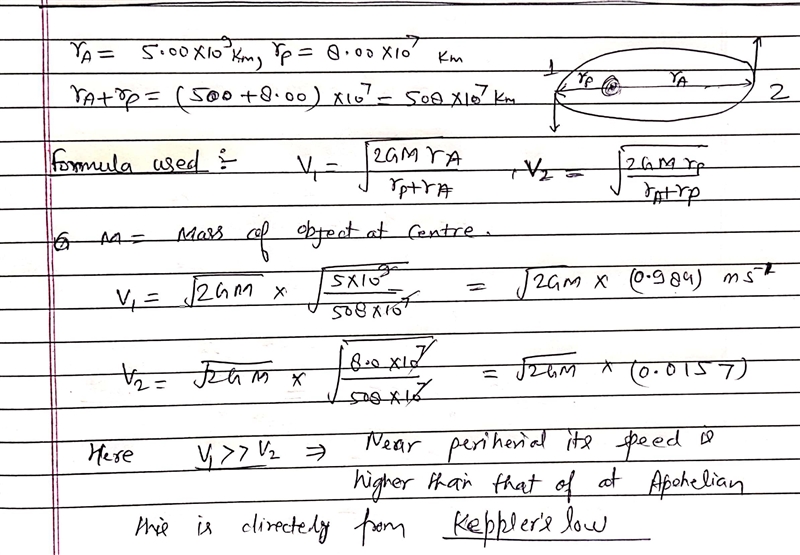 r_A = 5.00×10⁹ Km, r_P = 8.00 ×10⁷ Km
r_A+r_P = (500 + 8.00) ×10⁷ = 508 ×10⁷ Km
1 r_P r_A 2
Formula used :- V₁ = √(2GM r_A / r_P+r_A) , V₂ = √(2GM r_P / r_A+r_P)
G M = Mass of object at Centre.
V₁ = √2GM × √(5×10⁹ / 508×10⁷) = √2GM × (0.984) ms⁻¹
V₂ = √2GM × √(8.0 ×10⁷ / 508 ×10⁷) = √2GM × (0.0157)
Here V₁ >> V₂ ⇒ Near perihelial its speed is
higher than that of at Apohelian
this is directedly from Keppler's low